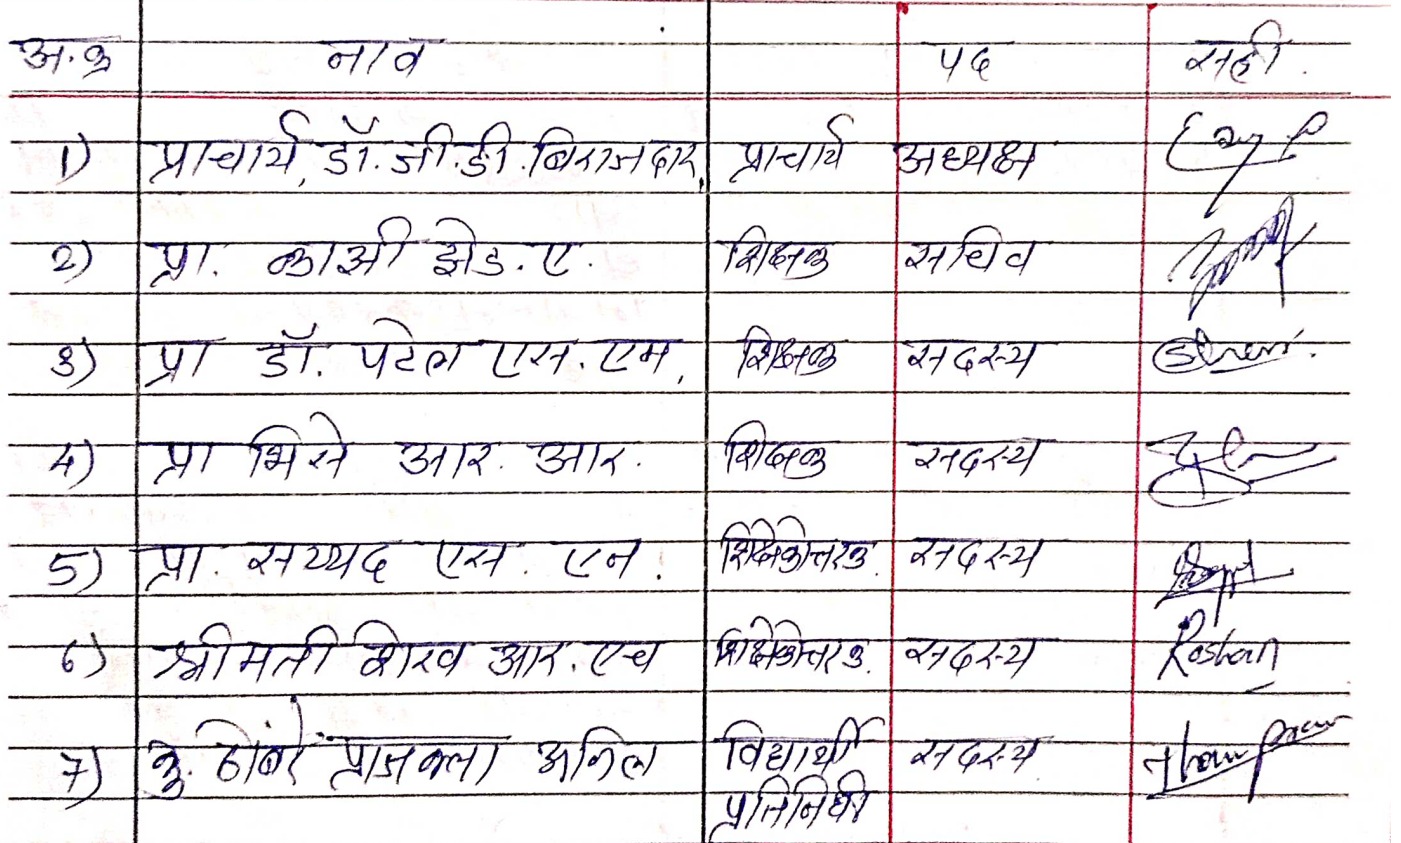 अ.क्र नाव पद सही.
1) प्राचार्य, डॉ. जी.डी. बिराजदार, प्राचार्य अध्यक्ष
2) प्रा. काझी झेड. ए. शिक्षक सचिव
3) प्रा डॉ. पटेल एस. एम. शिक्षक सदस्य
4) प्रा भिसे आर. आर. शिक्षक सदस्य
5) प्रा. सय्यद एस. एन. शिक्षकेत्तर क. सदस्य
6) श्रीमती शेख आर. एच शिक्षकेत्तर क. सदस्य Roshan
7) कु. ठोंबरे प्राजक्ता अनिल विद्यार्थी सदस्य
प्रतिनिधी